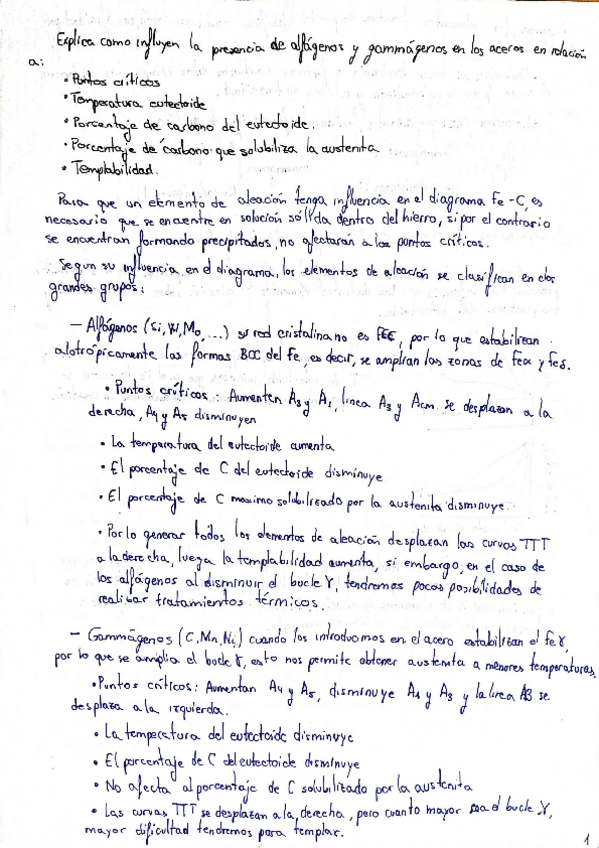 Explica como influyen la presencia de alfágenos y gammágenos en los aceros en relación
a:
• Puntos críticos
• Temperatura eutectoide
• Porcentaje de carbono del eutectoide.
• Porcentaje de carbono que solubiliza la austenita
• Templabilidad.
Para que un elemento de aleación tenga influencia en el diagrama Fe-C, es
necesario que se encuentre en solución sólida dentro del hierro, si por el contrario
se encuentran formando precipitados, no afectarán a los puntos críticos.
Según su influencia, en el diagrama, los elementos de aleación se clasifican en dos
grandes grupos:
— Alfágenos (Si, W, Mo, ...) su red cristalina no es FCC, por lo que estabilizan
alotrópicamente las formas BCC del Fe, es decir, se amplian las zonas de Feα y Feδ.
• Puntos críticos: Aumentan A3 y A1, línea A3 y Acm se desplazan a la
derecha, A4 y A5 disminuyen
• La temperatura del eutectoide aumenta
• El porcentaje de C del eutectoide disminuye
• El porcentaje de C maximo solubilizado por la austenita disminuye.
• Por lo general todos los elementos de aleación desplazan las curvas TTT
a la derecha, luego la templabilidad aumenta, si embargo, en el caso de
los alfágenos al disminuir el bucle γ, tendremos pocas posibilidades de
realizar tratamientos térmicos.
— Gammágenos (C, Mn, Ni) cuando los introducimos en el acero estabilizan el Feγ,
por lo que se amplia el bucle γ, esto nos permite obtener austenita a menores temperaturas.
• Puntos críticos: Aumentan A4 y A5, disminuye A1 y A3 y la línea A3 se
desplaza a la izquierda.
• La temperatura del eutectoide disminuye
• El porcentaje de C del eutectoide disminuye
• No afecta al porcentaje de C solubilizado por la austenita
• Las curvas TTT se desplazan a la derecha, pero cuanto mayor sea el bucle γ,
mayor dificultad tendremos para templar.
1